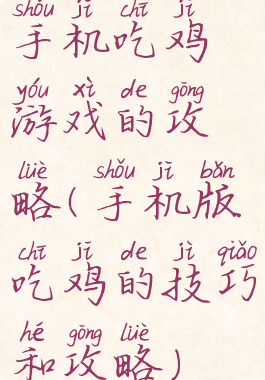 shǒu jī chī jī
手机吃鸡
yóu xì de gōng
游戏的攻
lüè shǒu jī bǎn
略(手机版
chī jī de jì qiǎo
吃鸡的技巧
hé gōng lüè
和攻略)